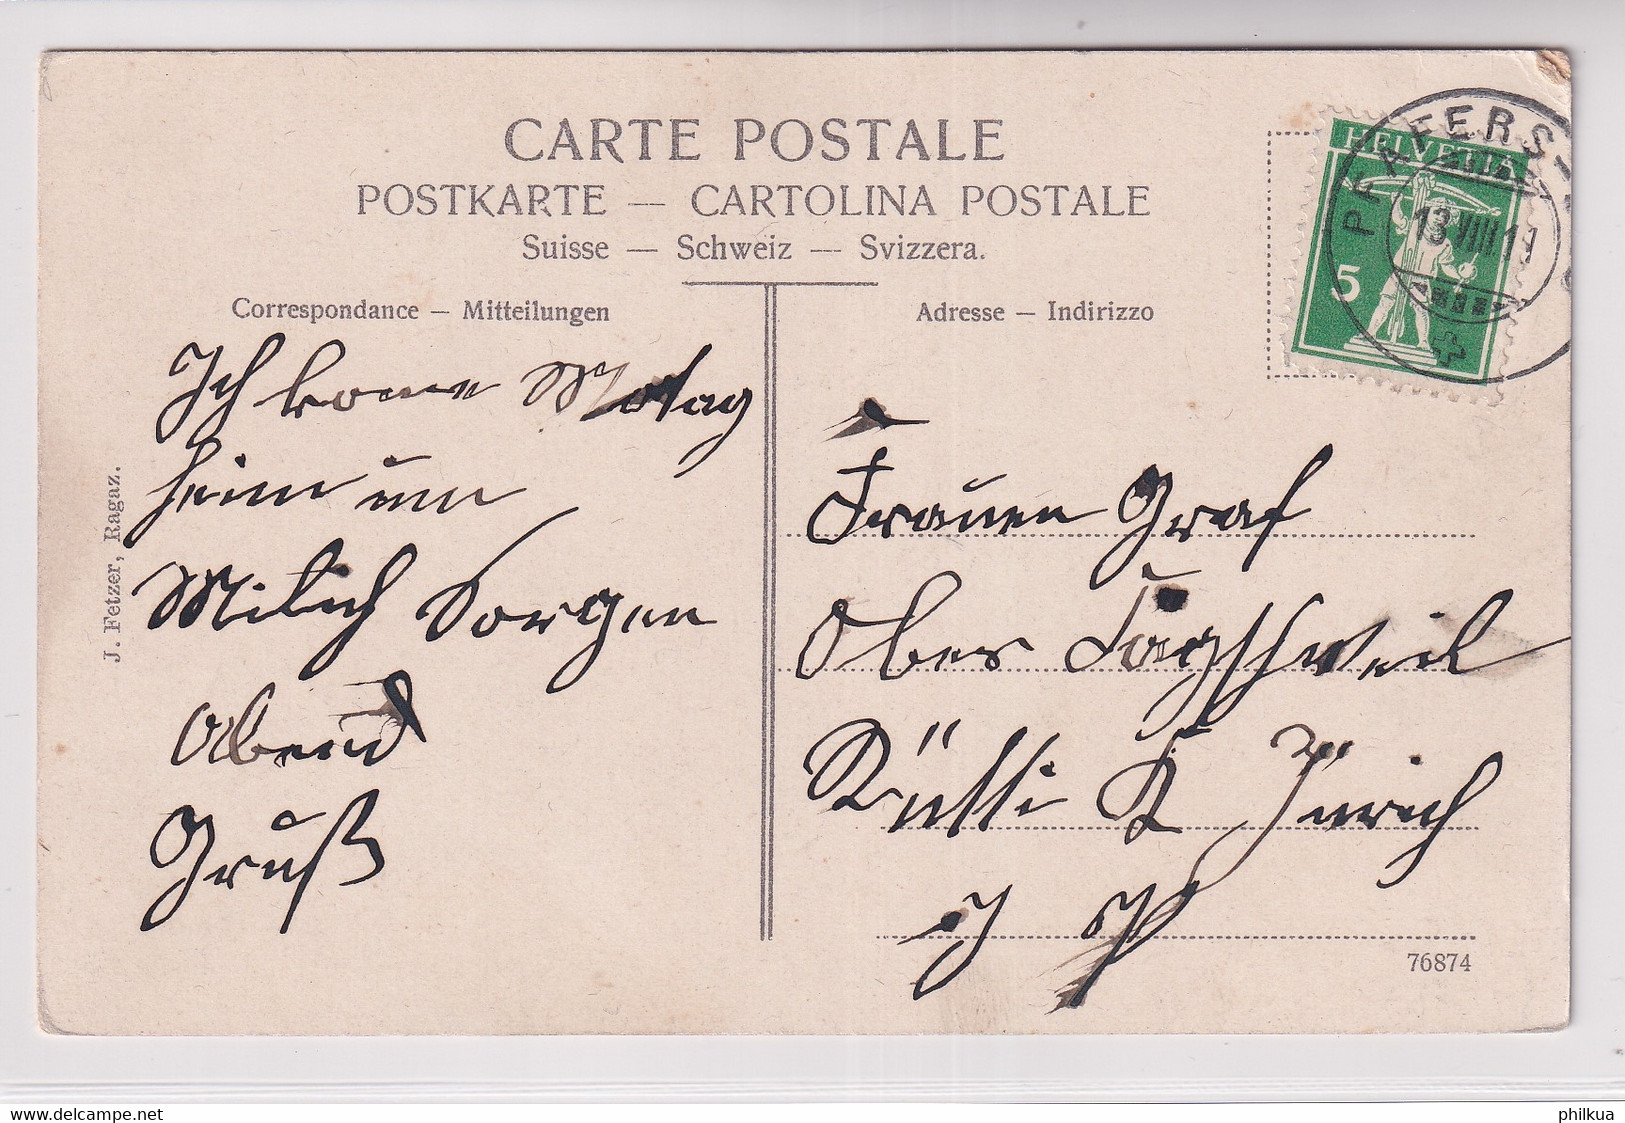 CARTE POSTALE
POSTKARTE — CARTOLINA POSTALE
Suisse — Schweiz — Svizzera.
Correspondance — Mitteilungen
Adresse — Indirizzo
HELVETIA
5
PFÄFERS-
13.VIII.11
J. Fetzer, Ragaz.
Ich kome Motag
heim um
Milich Sorgen
Abend
Gruß
Frauen Graf
Ober
Rütti K Zürich
76874
delcampe.net
philkua